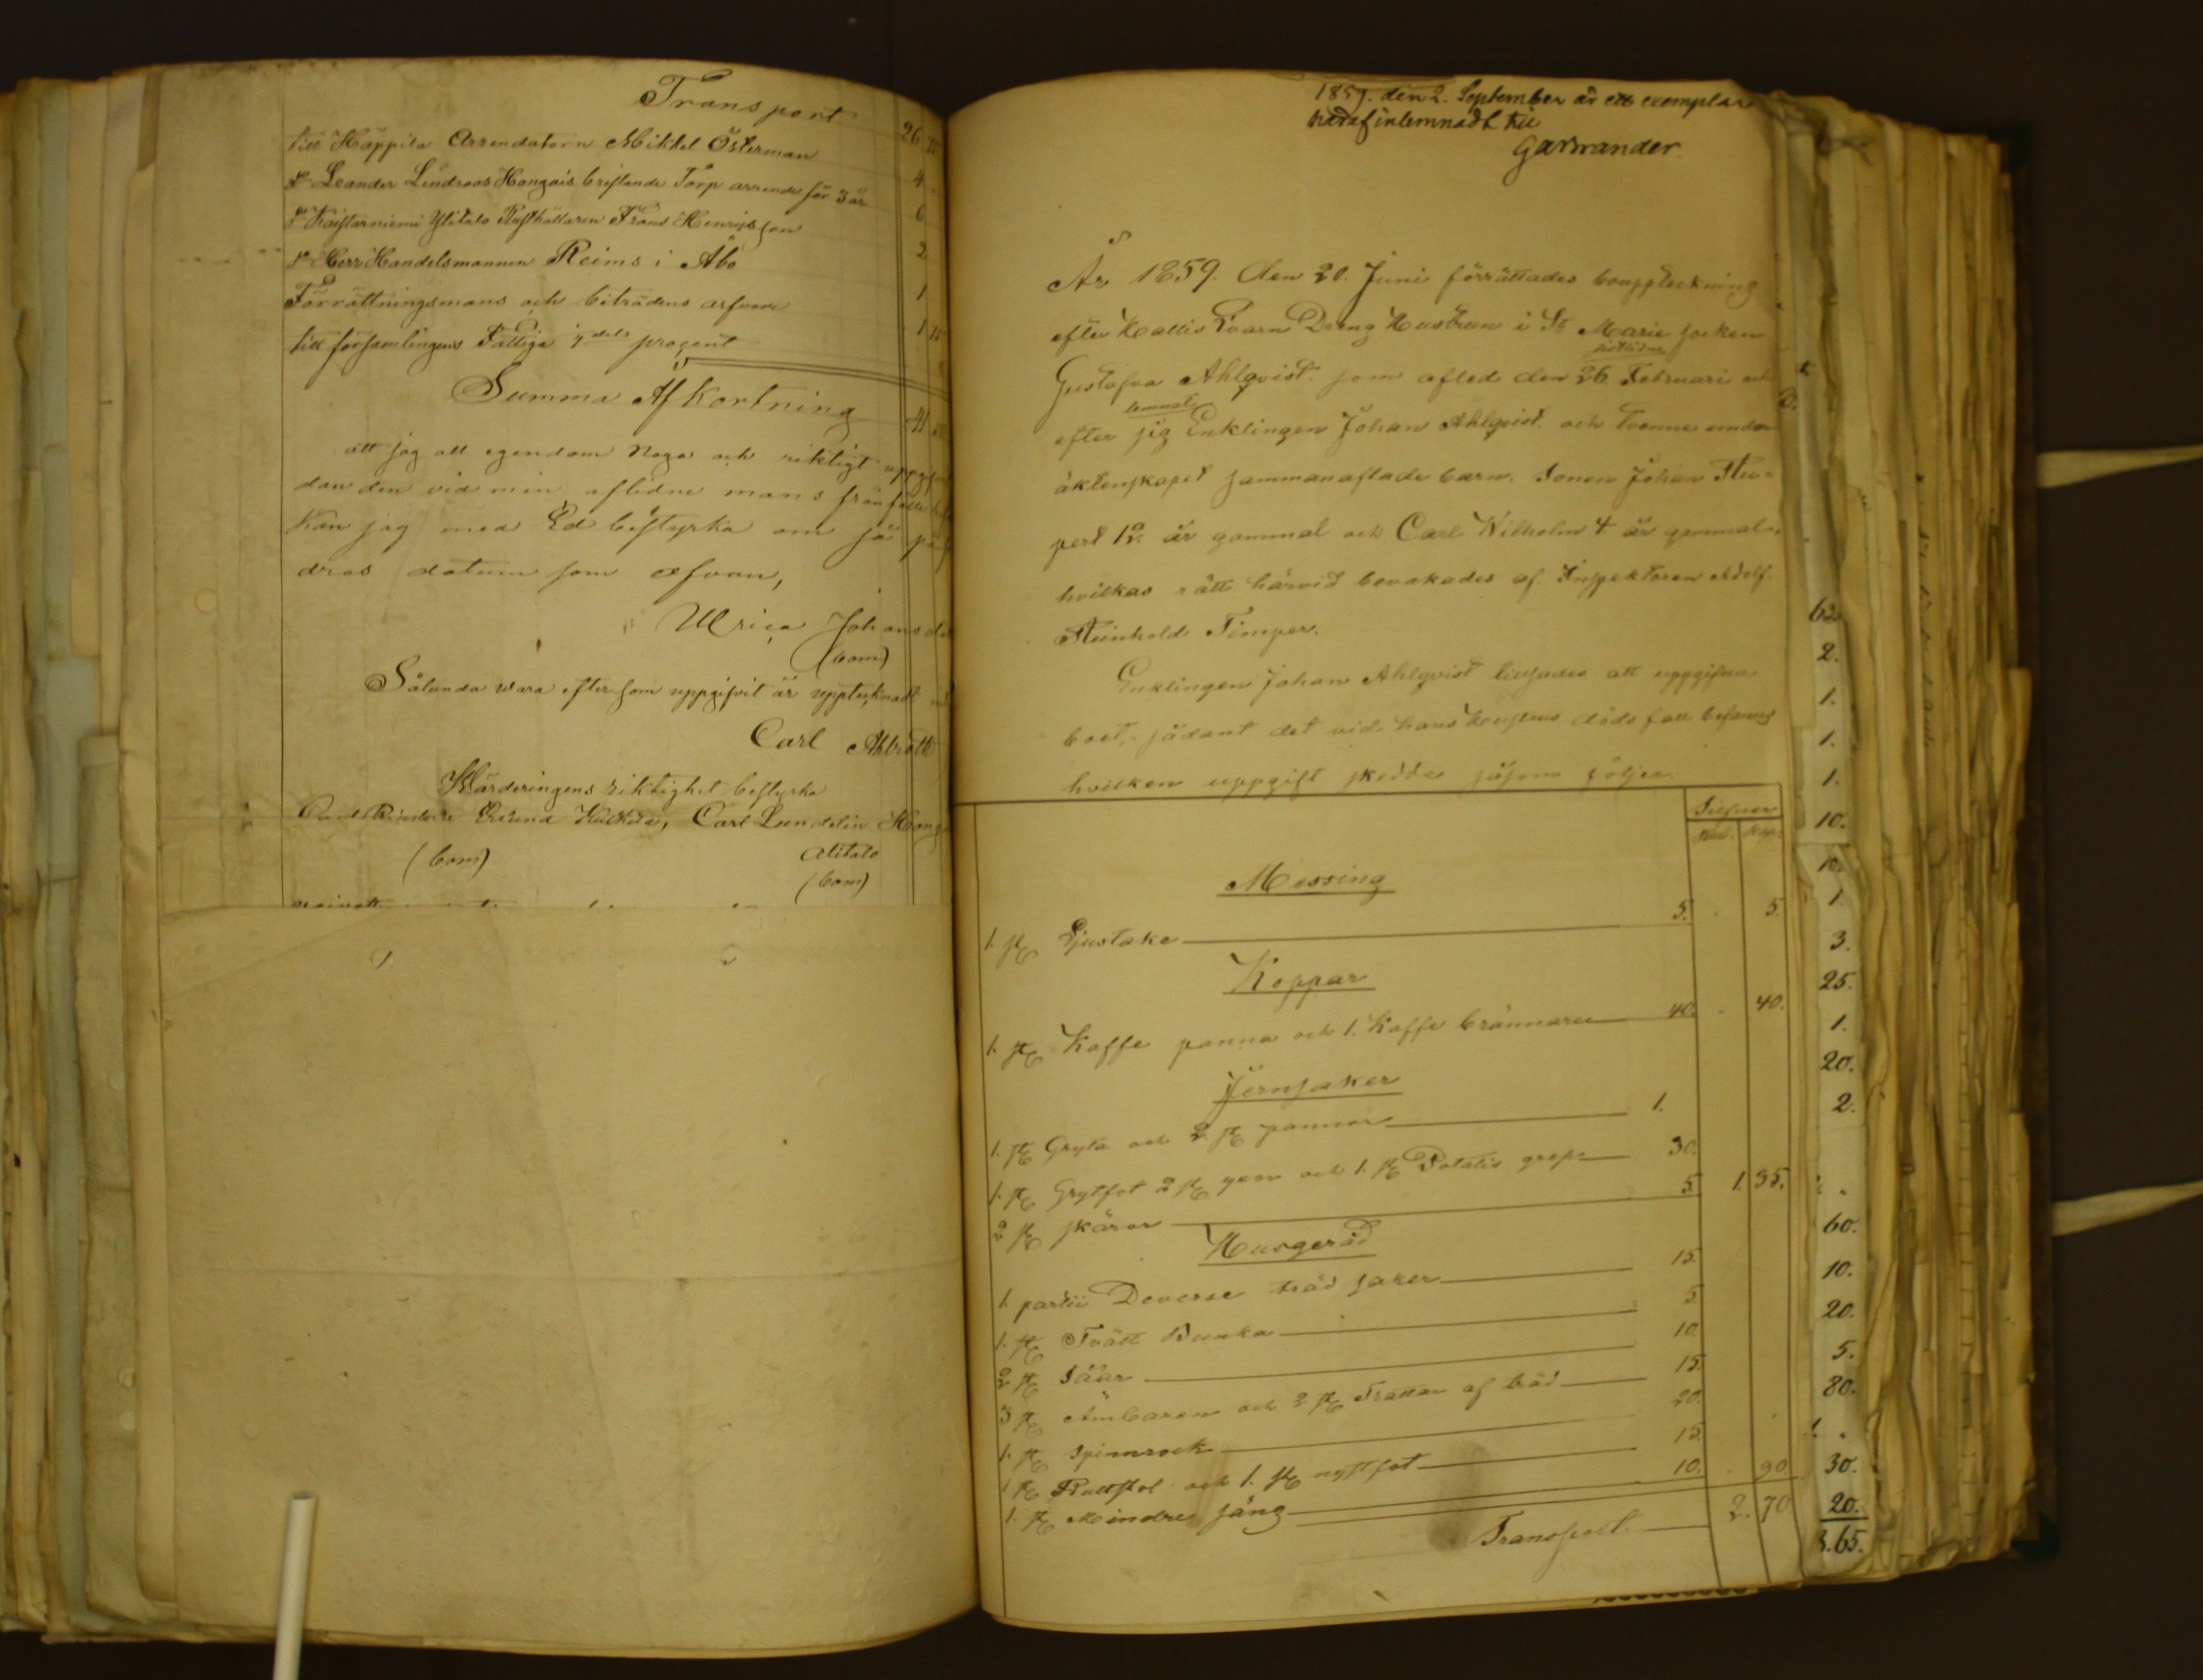 Transport 26
till Häppilä Arrendatorn Mikkel Österman 4
Dº Leander Lindroos Hongais bristande Torp arrende för 3 år 6
Dº Kaistarniemi Ylitalo Rusthållaren Frans Henriksson 2
Dº Herr Handelsmannen Reims i Åbo 1
Förrättningsmans och biträdens arfvode 1
till församlingens Fattige procent
Summa Afkortning 41
att jag all egendom noga och riktigt
dan den vid min aflidne mans frånfälle
kan jag med Ed bestyrka om så
dras datum som ofvan,
Ulrica Johans
(bom)
Sålunda wara efter som uppgifvit är upptecknadt
Carl
Wärderingens riktighet bestyrka
Erlund Carl Lundelin
(bom) Alitalo
(bom)
1859. den 2. September är ett exemplar
häraf inlemnadt till
Garvander.
År 1859. den 20. Juni förrättades bouppteckning
efter Kallis Qvarn Dreng Hustrun i St Marie socken
sistlidne
Gustafva Ahlqvist. som afled den 26 Februari och
lemnat
efter sig Enklingen Johan Ahlqvist. och tvenne under
äktenskapet sammanaflade barn. Sonen Johan Ru-
pert 12. år gammal och Carl Wilhelm 4 år gammal.
hvilkas rätt härvid bevakades af Inspektoren Adolf
Reinhold Timper.
Enklingen Johan Ahlqvist tillsades att uppgifva
boet, sådant det vid hans hustrus dödsfall befanns
hvilken uppgift skedde såsom följer.
Silfver
Rub. Kop.
Messing
1. st Ljustake 5. - 5.
Koppar
1. st Kaffe panna och 1. Kaffe brännare 40. - 40.
Jernsaker
1. st Gryta och 2 st pannor 1.
1. st Grytfot 2 st yxor och 1. st Potatis grepe 30.
2 st skäror 5. 1. 35.
Husgeråd
1. partii Deverse träd saker 15.
1. st Tvätt Bunka 5.
2 st Såar 10.
3 st Ämbaren och 2 st Trattar af träd 15.
1. st Spinnrock 20.
1 st Rullstol och 1. st nystfot 15.
1. st Mindre säng 10. - 90.
Transport. 2. 70
62.
2.
1.
1.
1.
10.
10.
1.
3.
25.
1.
20.
2.
60.
10.
20.
5.
80.
30.
20.
65.